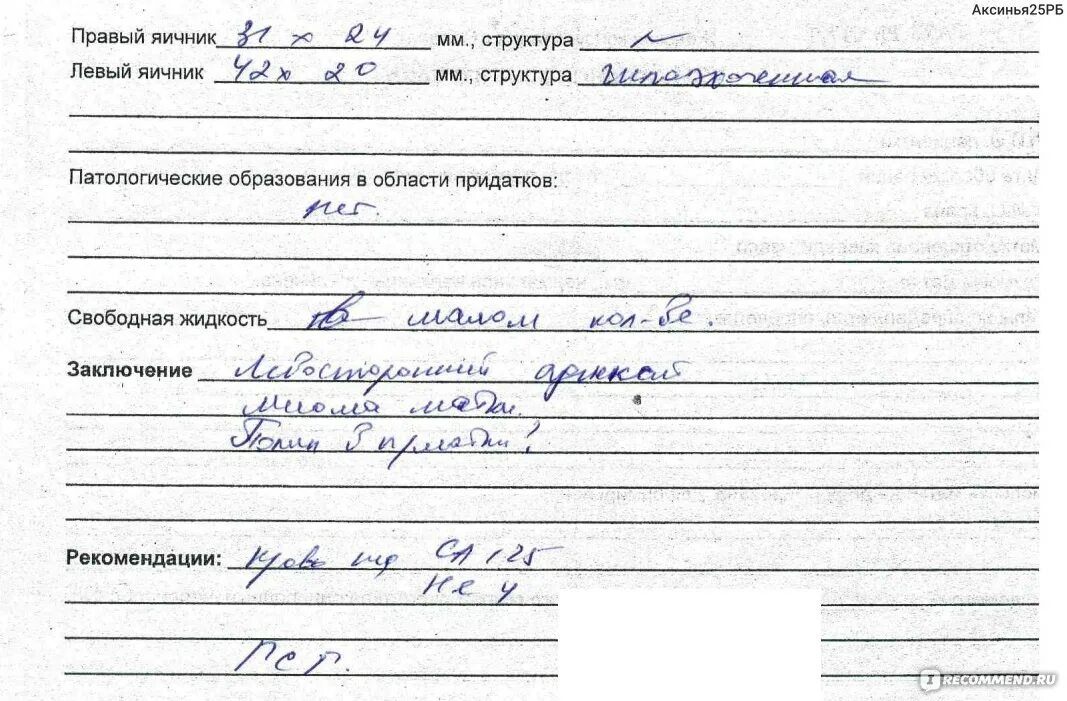 Аксинья25РБ
Правый яичник 31 х 24 мм., структура N
Левый яичник 42 х 20 мм., структура гипоэхогенная
Патологические образования в области придатков:
нет.
Свободная жидкость в малом кол-ве.
Заключение Левосторонний аднексит
Миома матки.
Полип ?
Рекомендации: Кровь на СА 125
НЕ 4
ГСГ.
IRECOMMEND.RU